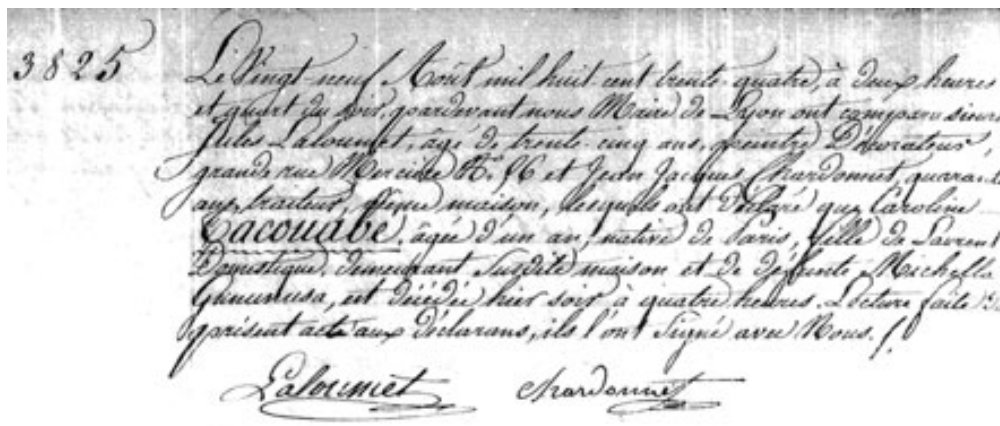 3825
Le Vingt-neuf Août mil huit cent trente-quatre, à deux heures
et quart du soir, pardevant nous Maire de Lyon ont comparu sieurs
Jules Laloumet, âgé de trente-cinq ans, peintre Décorateur,
grande rue Mercière N.° 56 et Jean Jacques Chardonnet, quarante
ans, traiteur, même maison, lesquels ont déclaré que Caroline
Tacouabé, âgée d'un an, native de Paris, fille de Laurent
Domestique, demeurant susdite maison et de défunte Michella
Gununusa, est décédée hier soir à quatre heures. Lecture faite du
présent acte aux déclarans, ils l'ont signé avec Nous.
Laloumet Chardonnet